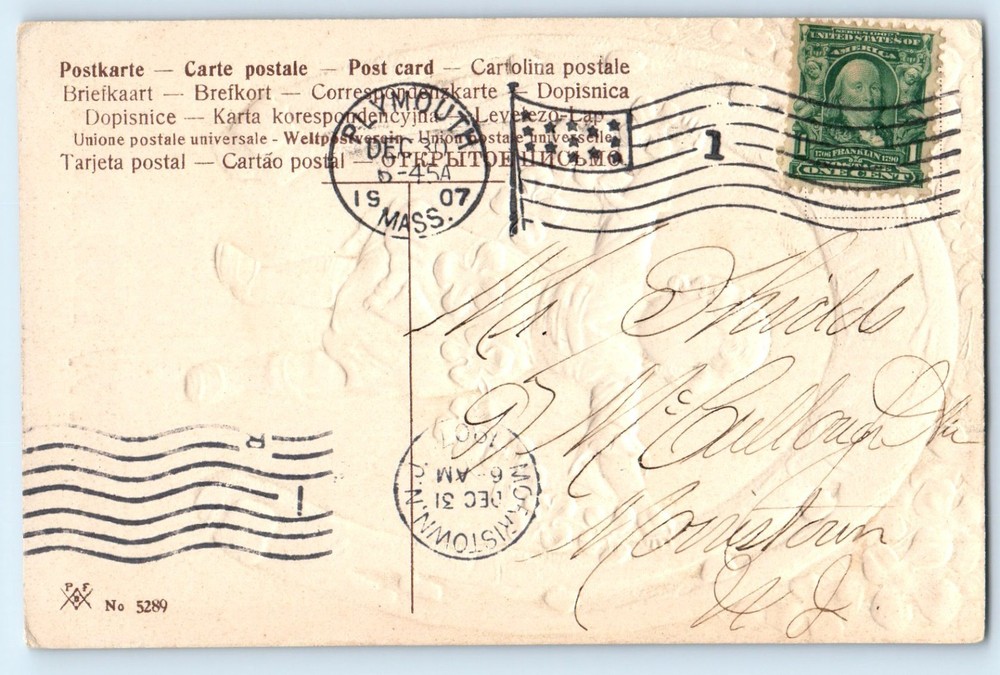 Postkarte — Carte postale — Post card — Cartolina postale
Briefkaart — Brefkort — Correspondenzkarte — Dopisnica
Dopisnice — Karta korespondencyjna — Levelezo-Lap
Unione postale universale - Weltpostverein - Union postale universelle
Tarjeta postal — Cartão postal — ОТКРЫТОЕ ПИСЬМО
PLYMOUTH
DEC 30
6-45A
19 07
MASS.
1
SERIES 1902
UNITED STATES OF
AMERICA
1 1
1706 FRANKLIN 1790
ONE CENT
Mr. Shields
97 McCullough
Morristown
N J.
R
1
MORRISTOWN, N.J.
DEC 31
6-AM
1907
P F
B
No 5289